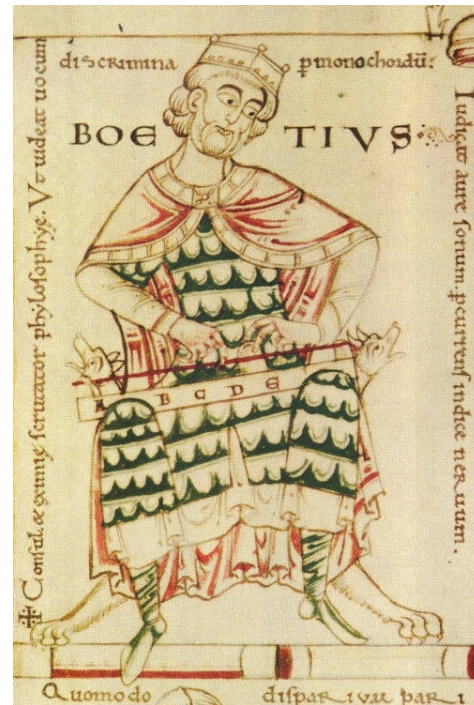 ✠ Conſul & eximie ſcrutator phyloſophye. Vt uideat uocum
diſcrimina p̄ monochordū:
BOETIVS
Iudicat aure ſonum. p̄currenſ indice neruum.
A B C D E
Quomodo diſpar